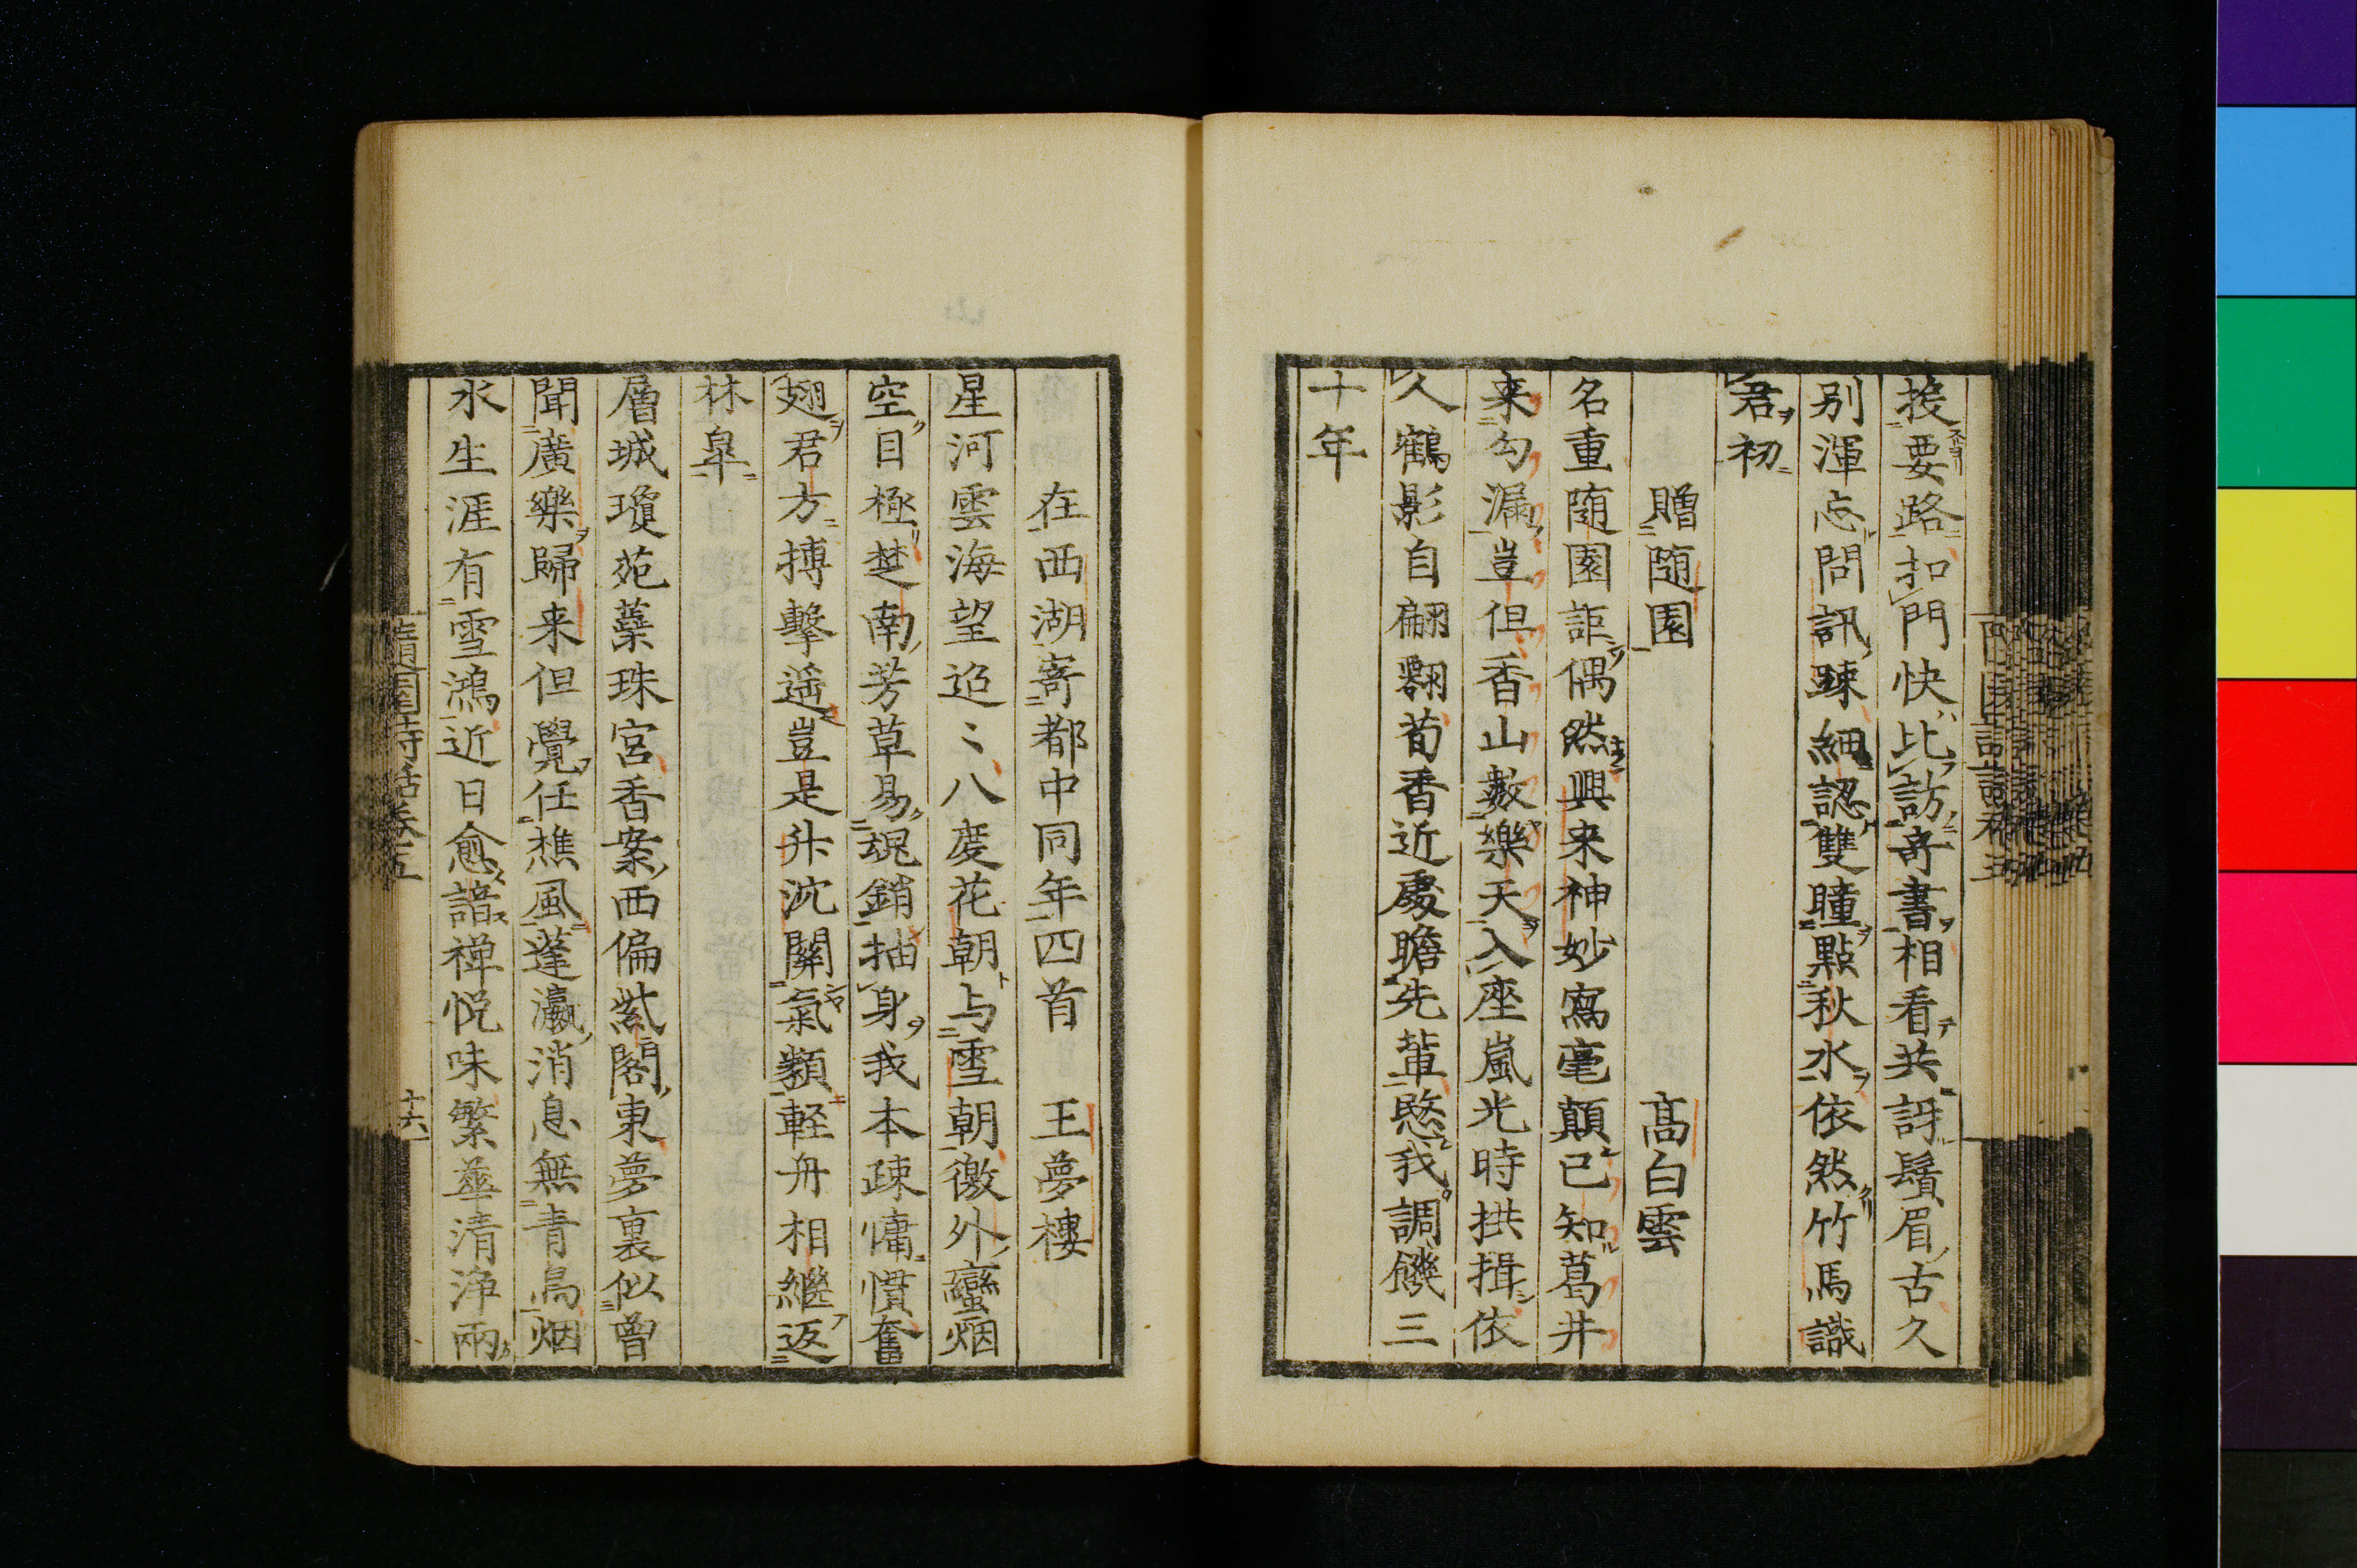 挨要路扣門快比訪奇書相看共訝鬚眉古久
別渾忘問訊踈細認雙瞳點秋水依然竹馬識
君初
贈随園　高白雲
名重随園詎偶然興来神妙寫毫顛已知葛井
来勾漏豈但香山數樂天入座嵐光時拱揖依
人鶴影自翩翾荀香近處瞻先軰愍我調饑三
十年
在西湖寄都中同年四首　王夢樓
星河雲海望迢〻八度花朝与雪朝徼外蠻烟
空目極楚南芳草易魂銷抽身我本疎慵慣奮
翅君方搏擊遥豈是升沈關氣類軽舟相繼返
林皐
層城瓊苑蘂珠宮香案西偏紫閣東夢裏似曾
聞廣樂歸来但覺任樵風蓬瀛消息無青鳥烟
水生涯有雪鴻近日愈諳禅悦味繁華清浄兩
隨園詩話卷五
十六